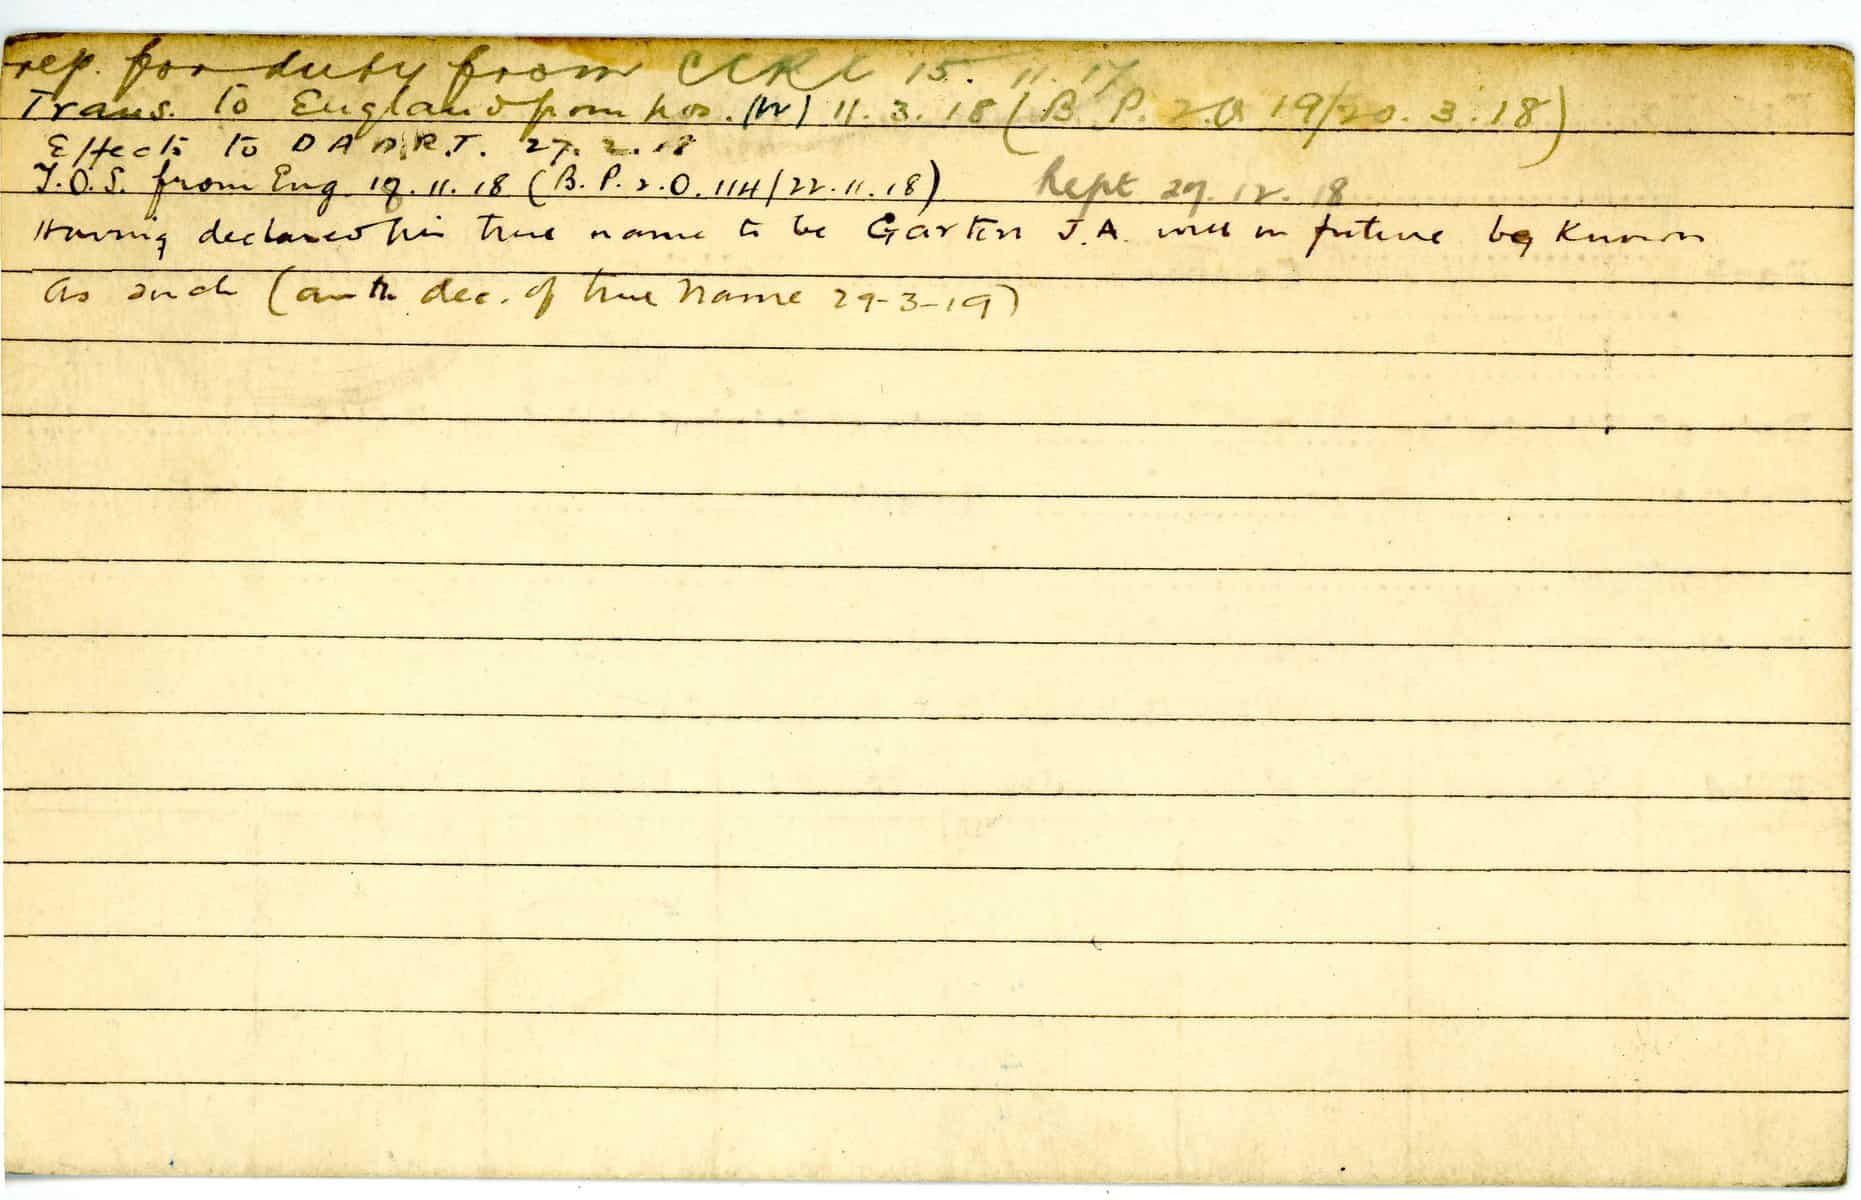 rep. for duty from CCRC 15. 11. 17
Trans. to England from hos. (W) 11. 3. 18 (B. P. 2.O 19/20. 3. 18)
Effects to D A D R.T. 27. 2. 18
T.O.S. from Eng 19. 11. 18 (B. P. 2. O. 114/22. 11. 18) Rept 29. 12. 18
Having declared his true name to be Garten J.A. will in future be known
as such (auth dec. of true name 29-3-19)